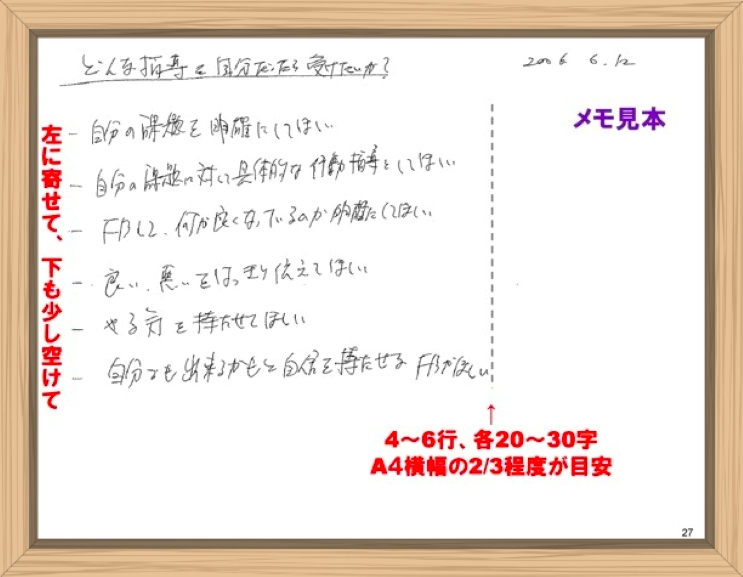 どんな指導を自分だったら受けたいか? 2006 6.12
メモ見本
左に寄せて、下も少し空けて
- 自分の課題を明確にしてほしい
- 自分の課題に対して具体的な行動指導をしてほしい
- FBして、何が良くなっているのか明確にしてほしい
- 良い、悪いをはっきり伝えてほしい
- やる気を持たせてほしい
- 自分でも出来るかもと自信を持たせるFBがほしい
↑
4～6行、各20～30字
A4横幅の2/3程度が目安
27